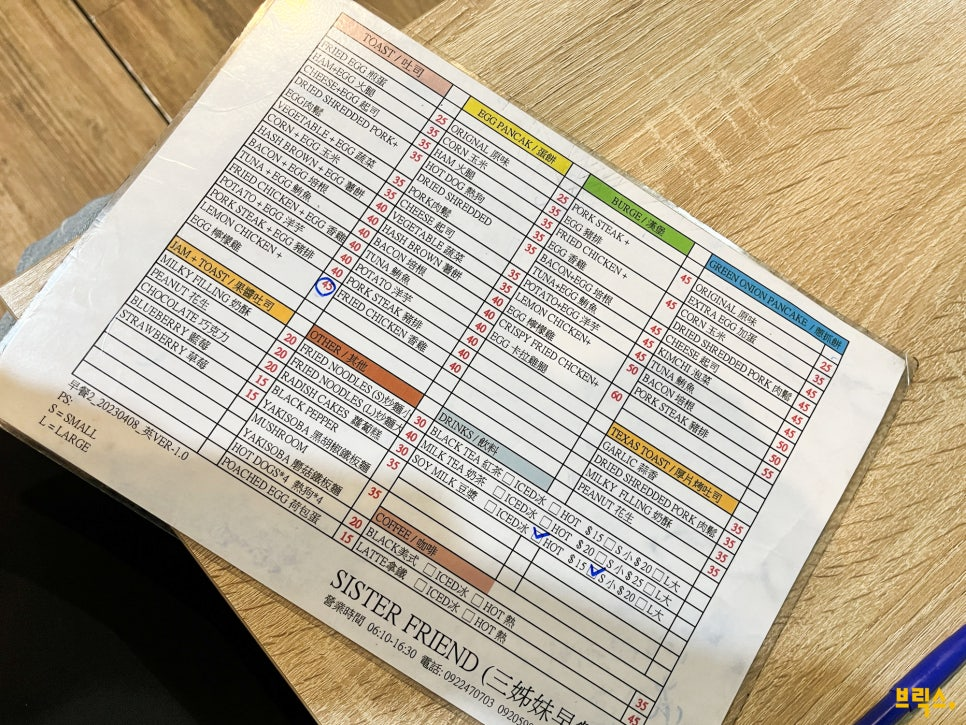 TOAST / 吐司
FRIED EGG 煎蛋 25
HAM+EGG 火腿 35
CHEESE+EGG 起司 35
DRIED SHREDDED PORK+
EGG肉鬆 35
VEGETABLE + EGG 蔬菜 35
CORN + EGG 玉米 35
HASH BROWN + EGG 薯餅 40
BACON + EGG 培根 40
TUNA + EGG 鮪魚 40
FRIED CHICKEN + EGG 香雞 40
POTATO + EGG 洋芋 40
PORK STEAK + EGG 豬排 40
LEMON CHICKEN +
EGG 檸檬雞 45
JAM + TOAST / 果醬吐司
MILKY FILLING 奶酥 20
PEANUT 花生 20
CHOCOLATE 巧克力 20
BLUEBERRY 藍莓 15
STRAWBERRY 草莓 15
早餐2_20230408_英VER-1.0
PS:
S = SMALL
L = LARGE
EGG PANCAK / 蛋餅
ORIGNAL 原味 25
CORN 玉米 35
HAM 火腿 35
HOT DOG 熱狗 35
DRIED SHREDDED
PORK肉鬆 35
CHEESE 起司 35
VEGETABLE 蔬菜 35
HASH BROWN 薯餅 40
BACON 培根 40
TUNA 鮪魚 40
POTATO 洋芋 40
PORK STEAK 豬排 40
FRIED CHICKEN 香雞 40
OTHER / 其他
FRIED NOODLES (S)炒麵小 30
FRIED NOODLES (L)炒麵大 40
RADISH CAKES 蘿蔔糕 30
BLACK PEPPER
YAKISOBA 黑胡椒鐵板麵 35
MUSHROOM
YAKISOBA 蘑菇鐵板麵 35
HOT DOGS*4 熱狗*4 20
POACHED EGG 荷包蛋 15
BURGE / 漢堡
PORK STEAK +
EGG 豬排 45
FRIED CHICKEN +
EGG 香雞 45
BACON+EGG 培根 45
TUNA+EGG 鮪魚 45
POTATO+EGG 洋芋 45
LEMON CHICKEN+
EGG 檸檬雞 50
CRISPY FRIED CHICKEN+
EGG 卡拉雞腿 60
DRINKS / 飲料
BLACK TEA 紅茶 □ICED冰 □HOT $15□S小$20□L大
MILK TEA 奶茶 □ICED冰 □HOT $20□S小$25□L大
SOY MILK 豆漿 □ICED冰 ☑HOT $15☑S小$20□L大
COFFEE / 咖啡
BLACK美式 □ICED冰 □HOT 熱 35
LATTE拿鐵 □ICED冰 □HOT 熱 45
GREEN ONION PANCAKE / 蔥抓餅
ORIGINAL 原味 25
EXTRA EGG 加蛋 35
CORN 玉米 45
CHEESE 起司 45
DRIED SHREDDED PORK 肉鬆 45
KIMCHI 泡菜 45
TUNA 鮪魚 50
BACON 培根 50
PORK STEAK 豬排 55
TEXAS TOAST / 厚片烤吐司
GARLIC 蒜香 35
DRIED SHREDDED PORK 肉鬆 35
MILKY FLLING 奶酥 35
PEANUT 花生 35
SISTER FRIEND (三姊妹早
營業時間 06:10-16:30 電話: 0922470703
브릭스.